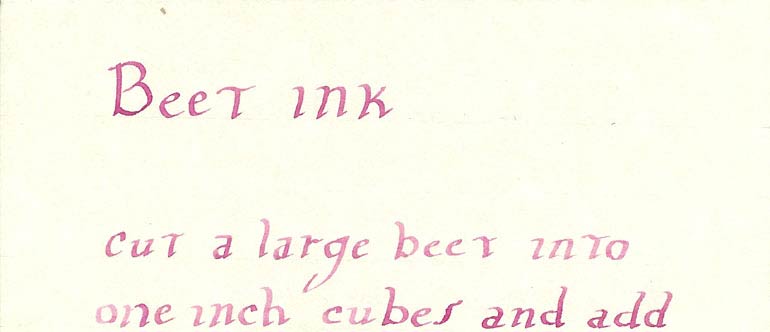 Beet ink
cut a large beet into
one inch cubes and add